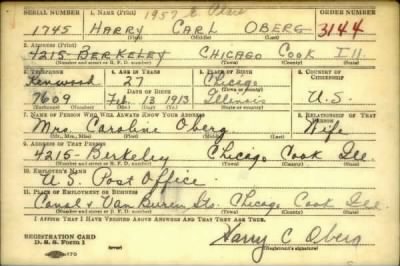 SERIAL NUMBER 1. NAME (Print) ORDER NUMBER
1745 HARRY CARL OBERG 3144
(First) (Middle) (Last)
2. ADDRESS (Print)
4215-BERKELEY CHICAGO COOK ILL
(Number and street or R. F. D. number) (Town) (County) (State)
3. TELEPHONE 4. AGE IN YEARS 5. PLACE OF BIRTH 6. COUNTRY OF CITIZENSHIP
Kenwood 27 Chicago
(Town or county)
DATE OF BIRTH
7609 Feb 13 1913 Illinois U.S.
(Mo.) (Day) (Yr.) (State or country)
7. NAME OF PERSON WHO WILL ALWAYS KNOW YOUR ADDRESS 8. RELATIONSHIP OF THAT PERSON
Mrs Caroline Oberg Wife
(Mr., Mrs., Miss) (First) (Middle) (Last)
9. ADDRESS OF THAT PERSON
4215-Berkeley Chicago Cook Ill.
(Number and street or R. F. D. number) (Town) (County) (State)
10. EMPLOYER'S NAME
U.S. Post Office.
11. PLACE OF EMPLOYMENT OR BUSINESS
Canal & Van Buren Sts. Chicago Cook Ill
(Number and street or R. F. D. number) (Town) (County) (State)
I AFFIRM THAT I HAVE VERIFIED ABOVE ANSWERS AND THAT THEY ARE TRUE.
REGISTRATION CARD
D. S. S. Form 1
Harry C Oberg
(Registrant's signature)